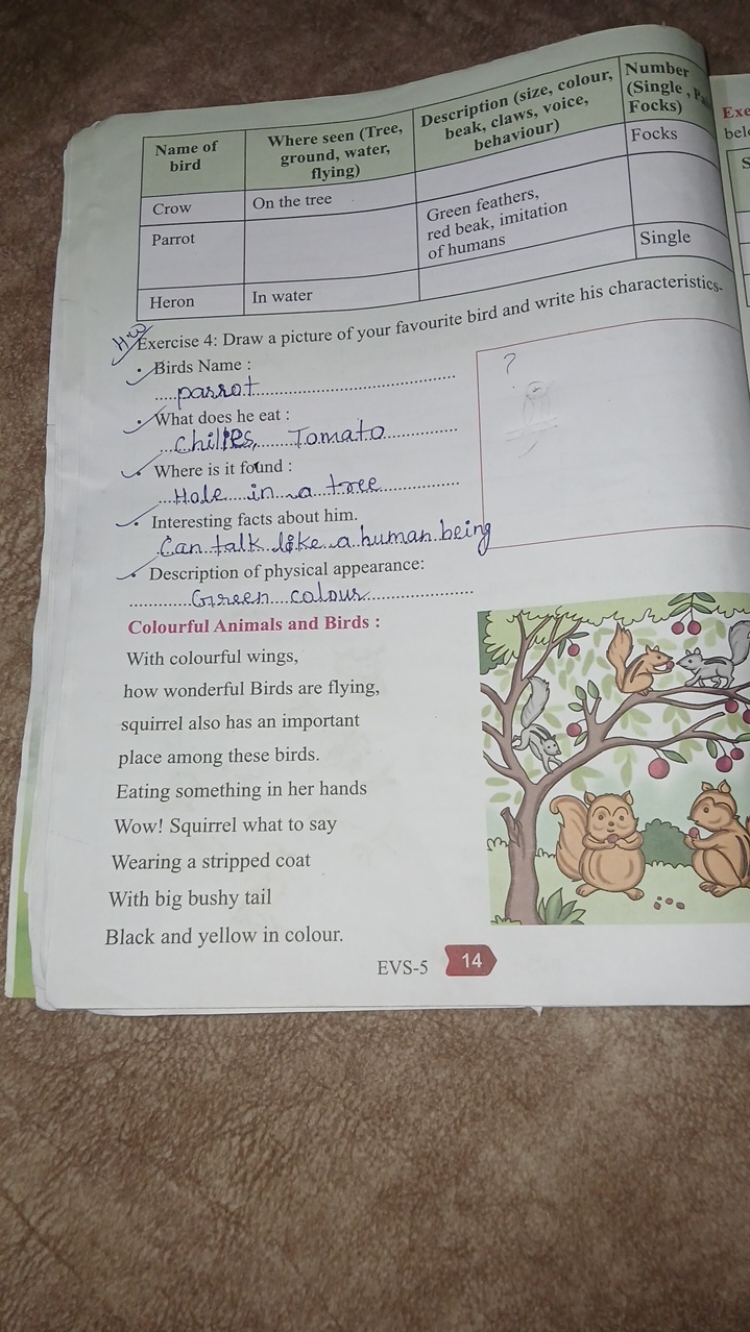 Name of bird
Where seen (Tree, ground, water, flying)
Description (size, colour, beak, claws, voice, behaviour)
Number (Single, Focks)
Crow
On the tree
Focks
Parrot
Green feathers, red beak, imitation of humans
Heron
In water
Single
HW
Exercise 4: Draw a picture of your favourite bird and write his characteristics.
• Birds Name :
parrot
?
• What does he eat :
Chilies, Tomato
• Where is it found :
Hole in a tree
• Interesting facts about him.
Can talk like a human being
• Description of physical appearance:
Green colour
Colourful Animals and Birds :
With colourful wings,
how wonderful Birds are flying,
squirrel also has an important
place among these birds.
Eating something in her hands
Wow! Squirrel what to say
Wearing a stripped coat
With big bushy tail
Black and yellow in colour.
EVS-5 14